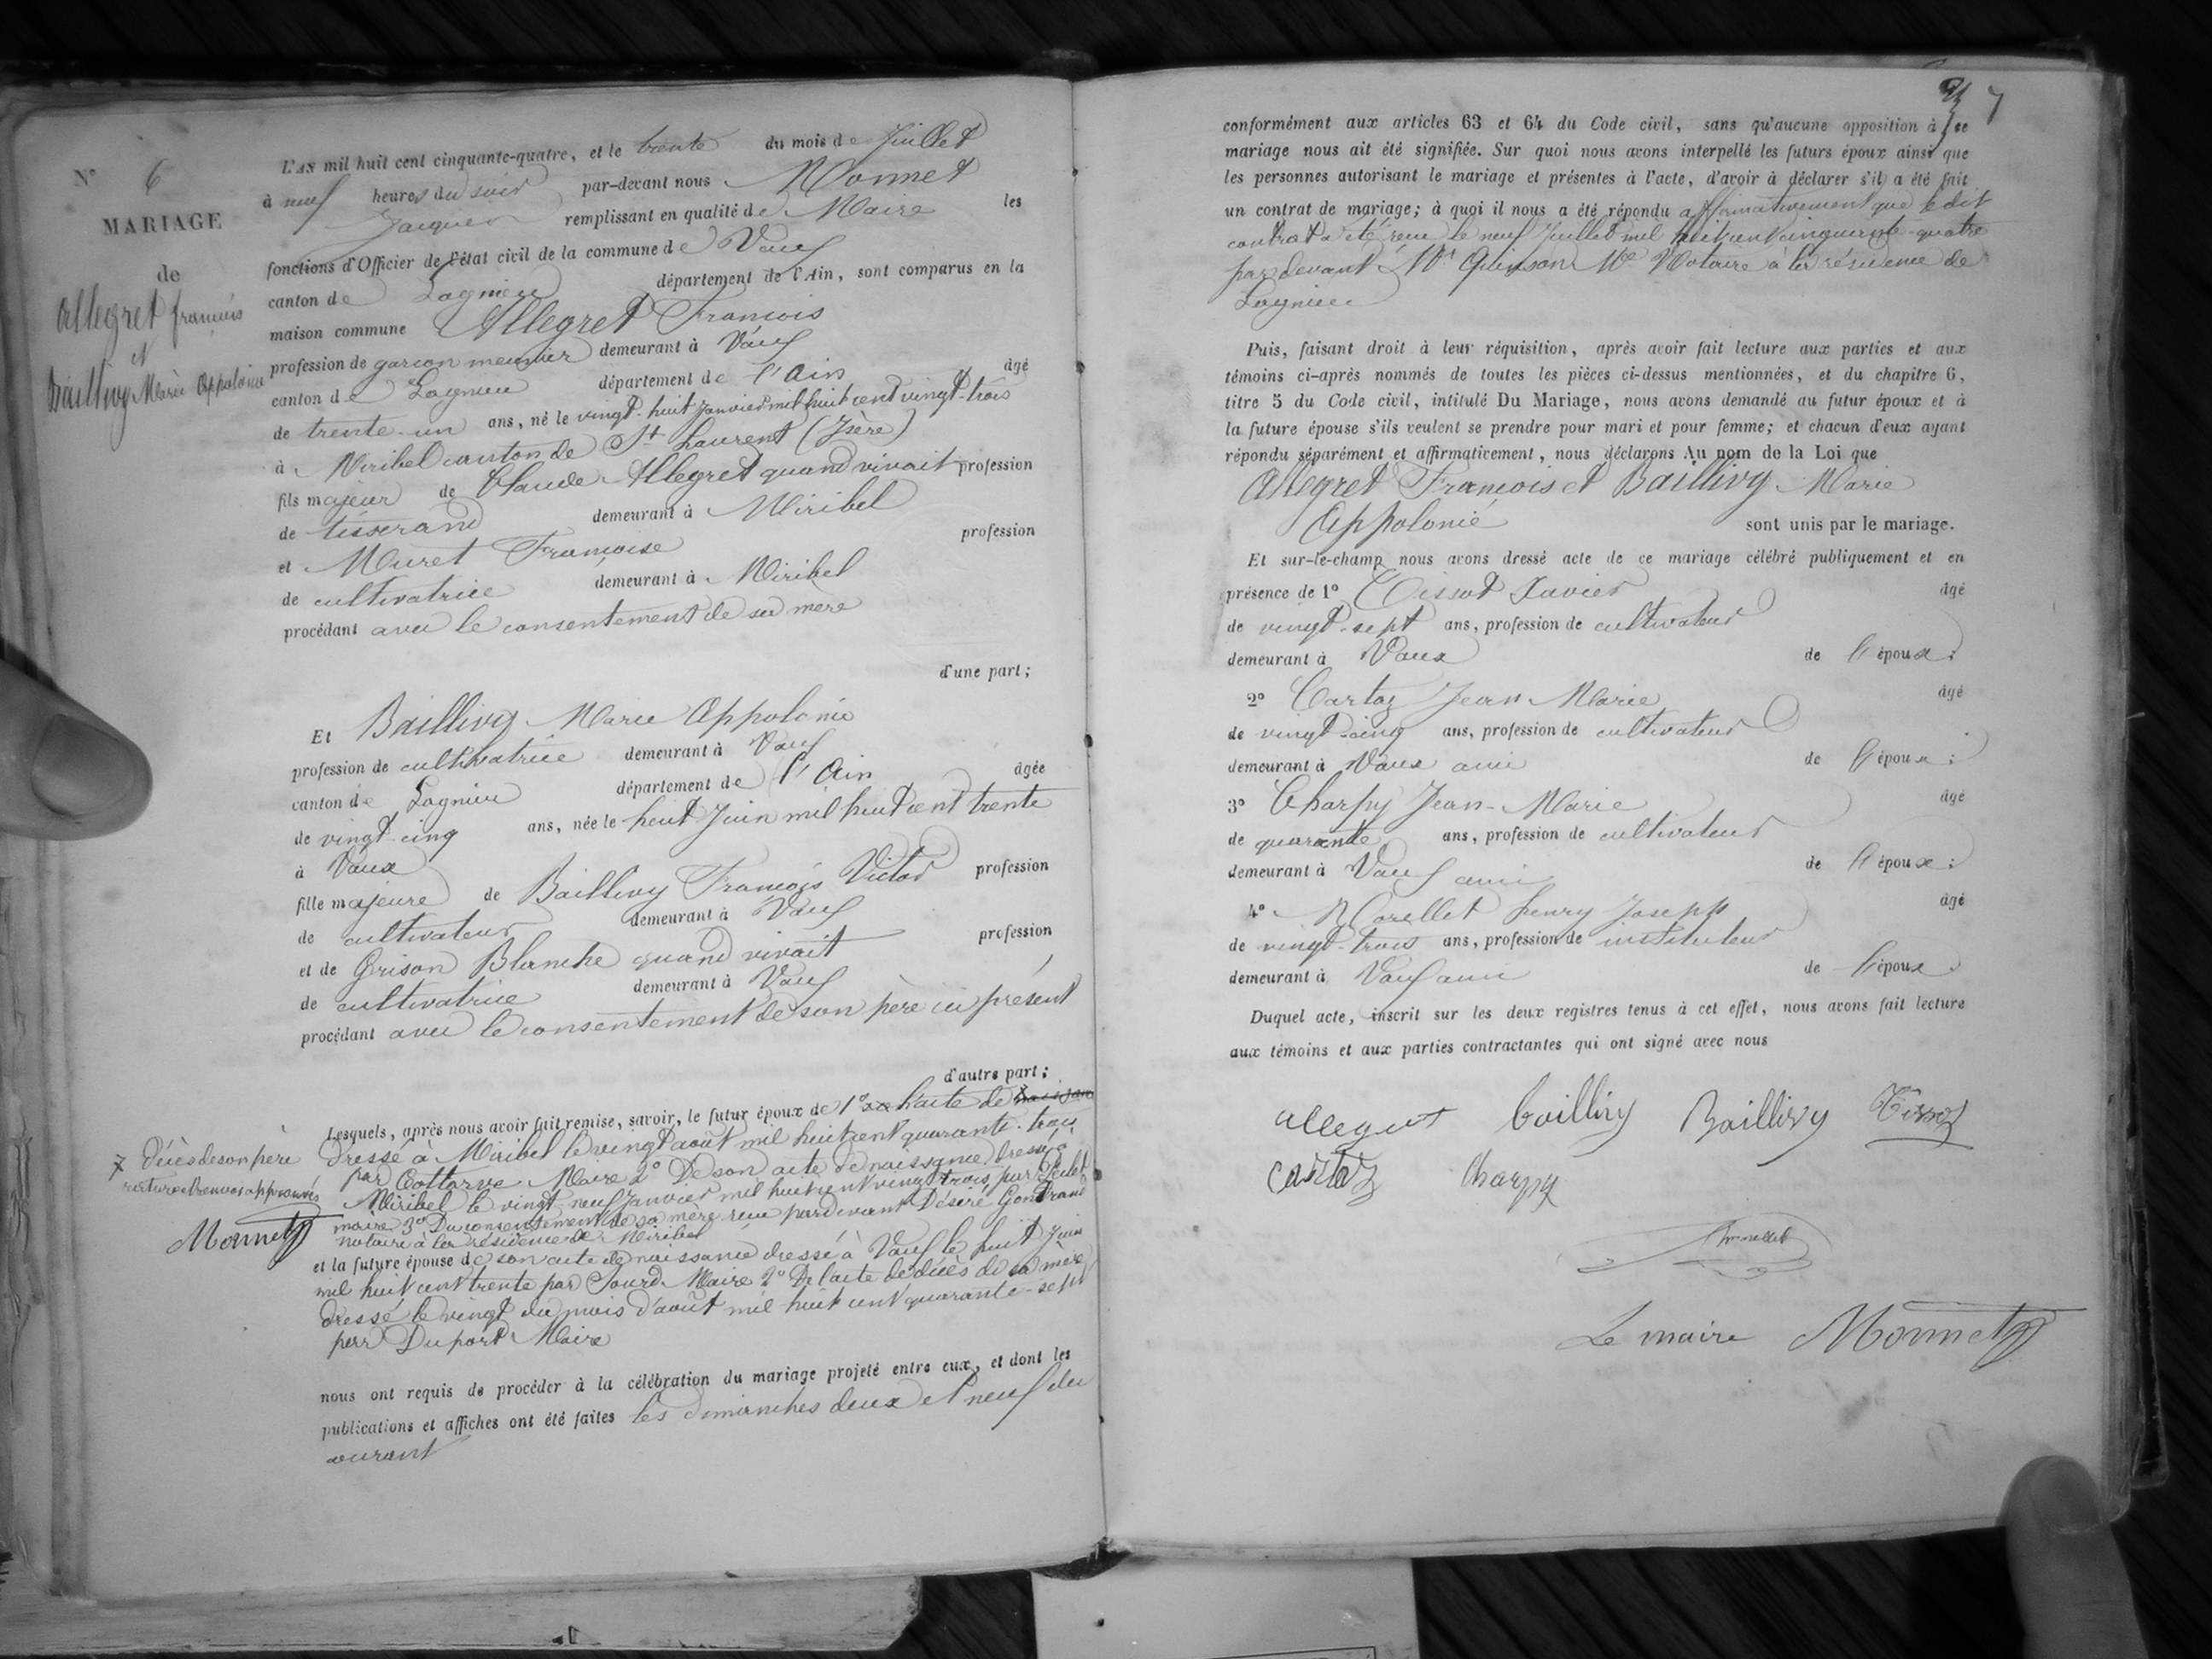 N° 6
MARIAGE
de
Allegret françois
et
Baillivy Marie Appolonie
L'AN mil huit cent cinquante-quatre, et le trente du mois de Juillet
à neuf heures du soir par-devant nous Monnet
Jacques remplissant en qualité de Maire les
fonctions d'Officier de l'état civil de la commune de Vaux
canton de Lagnieu département de l'Ain, sont comparus en la
maison commune Allegret François
profession de garçon meunier demeurant à Vaux
canton de Lagnieu département de l'Ain âgé
de trente-un ans, né le vingt-huit Janvier mil huit cent vingt-trois
à Miribel canton de St Laurent (Isère)
fils majeur de Claude Allegret quand vivait profession
de tisserand demeurant à Miribel
et Muret Françoise profession
de cultivatrice demeurant à Miribel
procédant avec le consentement de sa mère
d'une part;
Et Baillivy Marie Appolonie
profession de cultivatrice demeurant à Vaux
canton de Lagnieu département de l'Ain âgée
de vingt-cinq ans, née le huit Juin mil huit cent trente
à Vaux
fille majeure de Baillivy François Victor profession
de cultivateur demeurant à Vaux
et de Grison Blanche quand vivait profession
de cultivatrice demeurant à Vaux
procédant avec le consentement de son père ici présent
d'autre part;
Lesquels, après nous avoir fait remise, savoir, le futur époux de 1° l'acte de
dressé à Miribel le vingt août mil huit cent quarante-trois
par Cottarve Maire 2° De son acte de naissance dressé à
Miribel le vingt neuf Janvier mil huit cent vingt trois par
maire 3° Du consentement de sa mère reçu pardevant Désiré Gontrand
notaire à la résidence de Miribel
et la future épouse de son acte de naissance dressé à Vaux le huit Juin
mil huit cent trente par Sourd Maire 2° De l'acte de décès de sa mère
dressé le vingt du mois d'août mil huit cent quarante-sept
par Duport Maire
nous ont requis de procéder à la célébration du mariage projeté entre eux, et dont les
publications et affiches ont été faites les dimanches deux et neuf du
courant
décès de son père
rature et renvoi approuvés
Monnet
7
conformément aux articles 63 et 64 du Code civil, sans qu'aucune opposition à ce
mariage nous ait été signifiée. Sur quoi nous avons interpellé les futurs époux ainsi que
les personnes autorisant le mariage et présentes à l'acte, d'avoir à déclarer s'il a été fait
un contrat de mariage; à quoi il nous a été répondu affirmativement que le dit
contrat a été reçu le neuf Juillet mil huit cent cinquante-quatre
par devant Quinson Notaire à la résidence de
Lagnieu
Puis, faisant droit à leur réquisition, après avoir fait lecture aux parties et aux
témoins ci-après nommés de toutes les pièces ci-dessus mentionnées, et du chapitre 6,
titre 5 du Code civil, intitulé Du Mariage, nous avons demandé au futur époux et à
la future épouse s'ils veulent se prendre pour mari et pour femme; et chacun d'eux ayant
répondu séparément et affirmativement, nous déclarons Au nom de la Loi que
Allegret François et Baillivy Marie
Appolonie sont unis par le mariage.
Et sur-le-champ nous avons dressé acte de ce mariage célébré publiquement et en
présence de 1° Tissot Xavier âgé
de vingt-sept ans, profession de cultivateur
demeurant à Vaux de l'époux;
2° Cartaz Jean Marie âgé
de vingt-cinq ans, profession de cultivateur
demeurant à Vaux ami de l'époux;
3° Charpy Jean-Marie âgé
de quarante ans, profession de cultivateur
demeurant à Vaux ami de l'époux;
4° Morellet henry Joseph âgé
de vingt-trois ans, profession de instituteur
demeurant à Vaux ami de l'époux
Duquel acte, inscrit sur les deux registres tenus à cet effet, nous avons fait lecture
aux témoins et aux parties contractantes qui ont signé avec nous
allegret baillivy Baillivy Tissot
cartaz Charpy
Morellet
Le maire Monnet